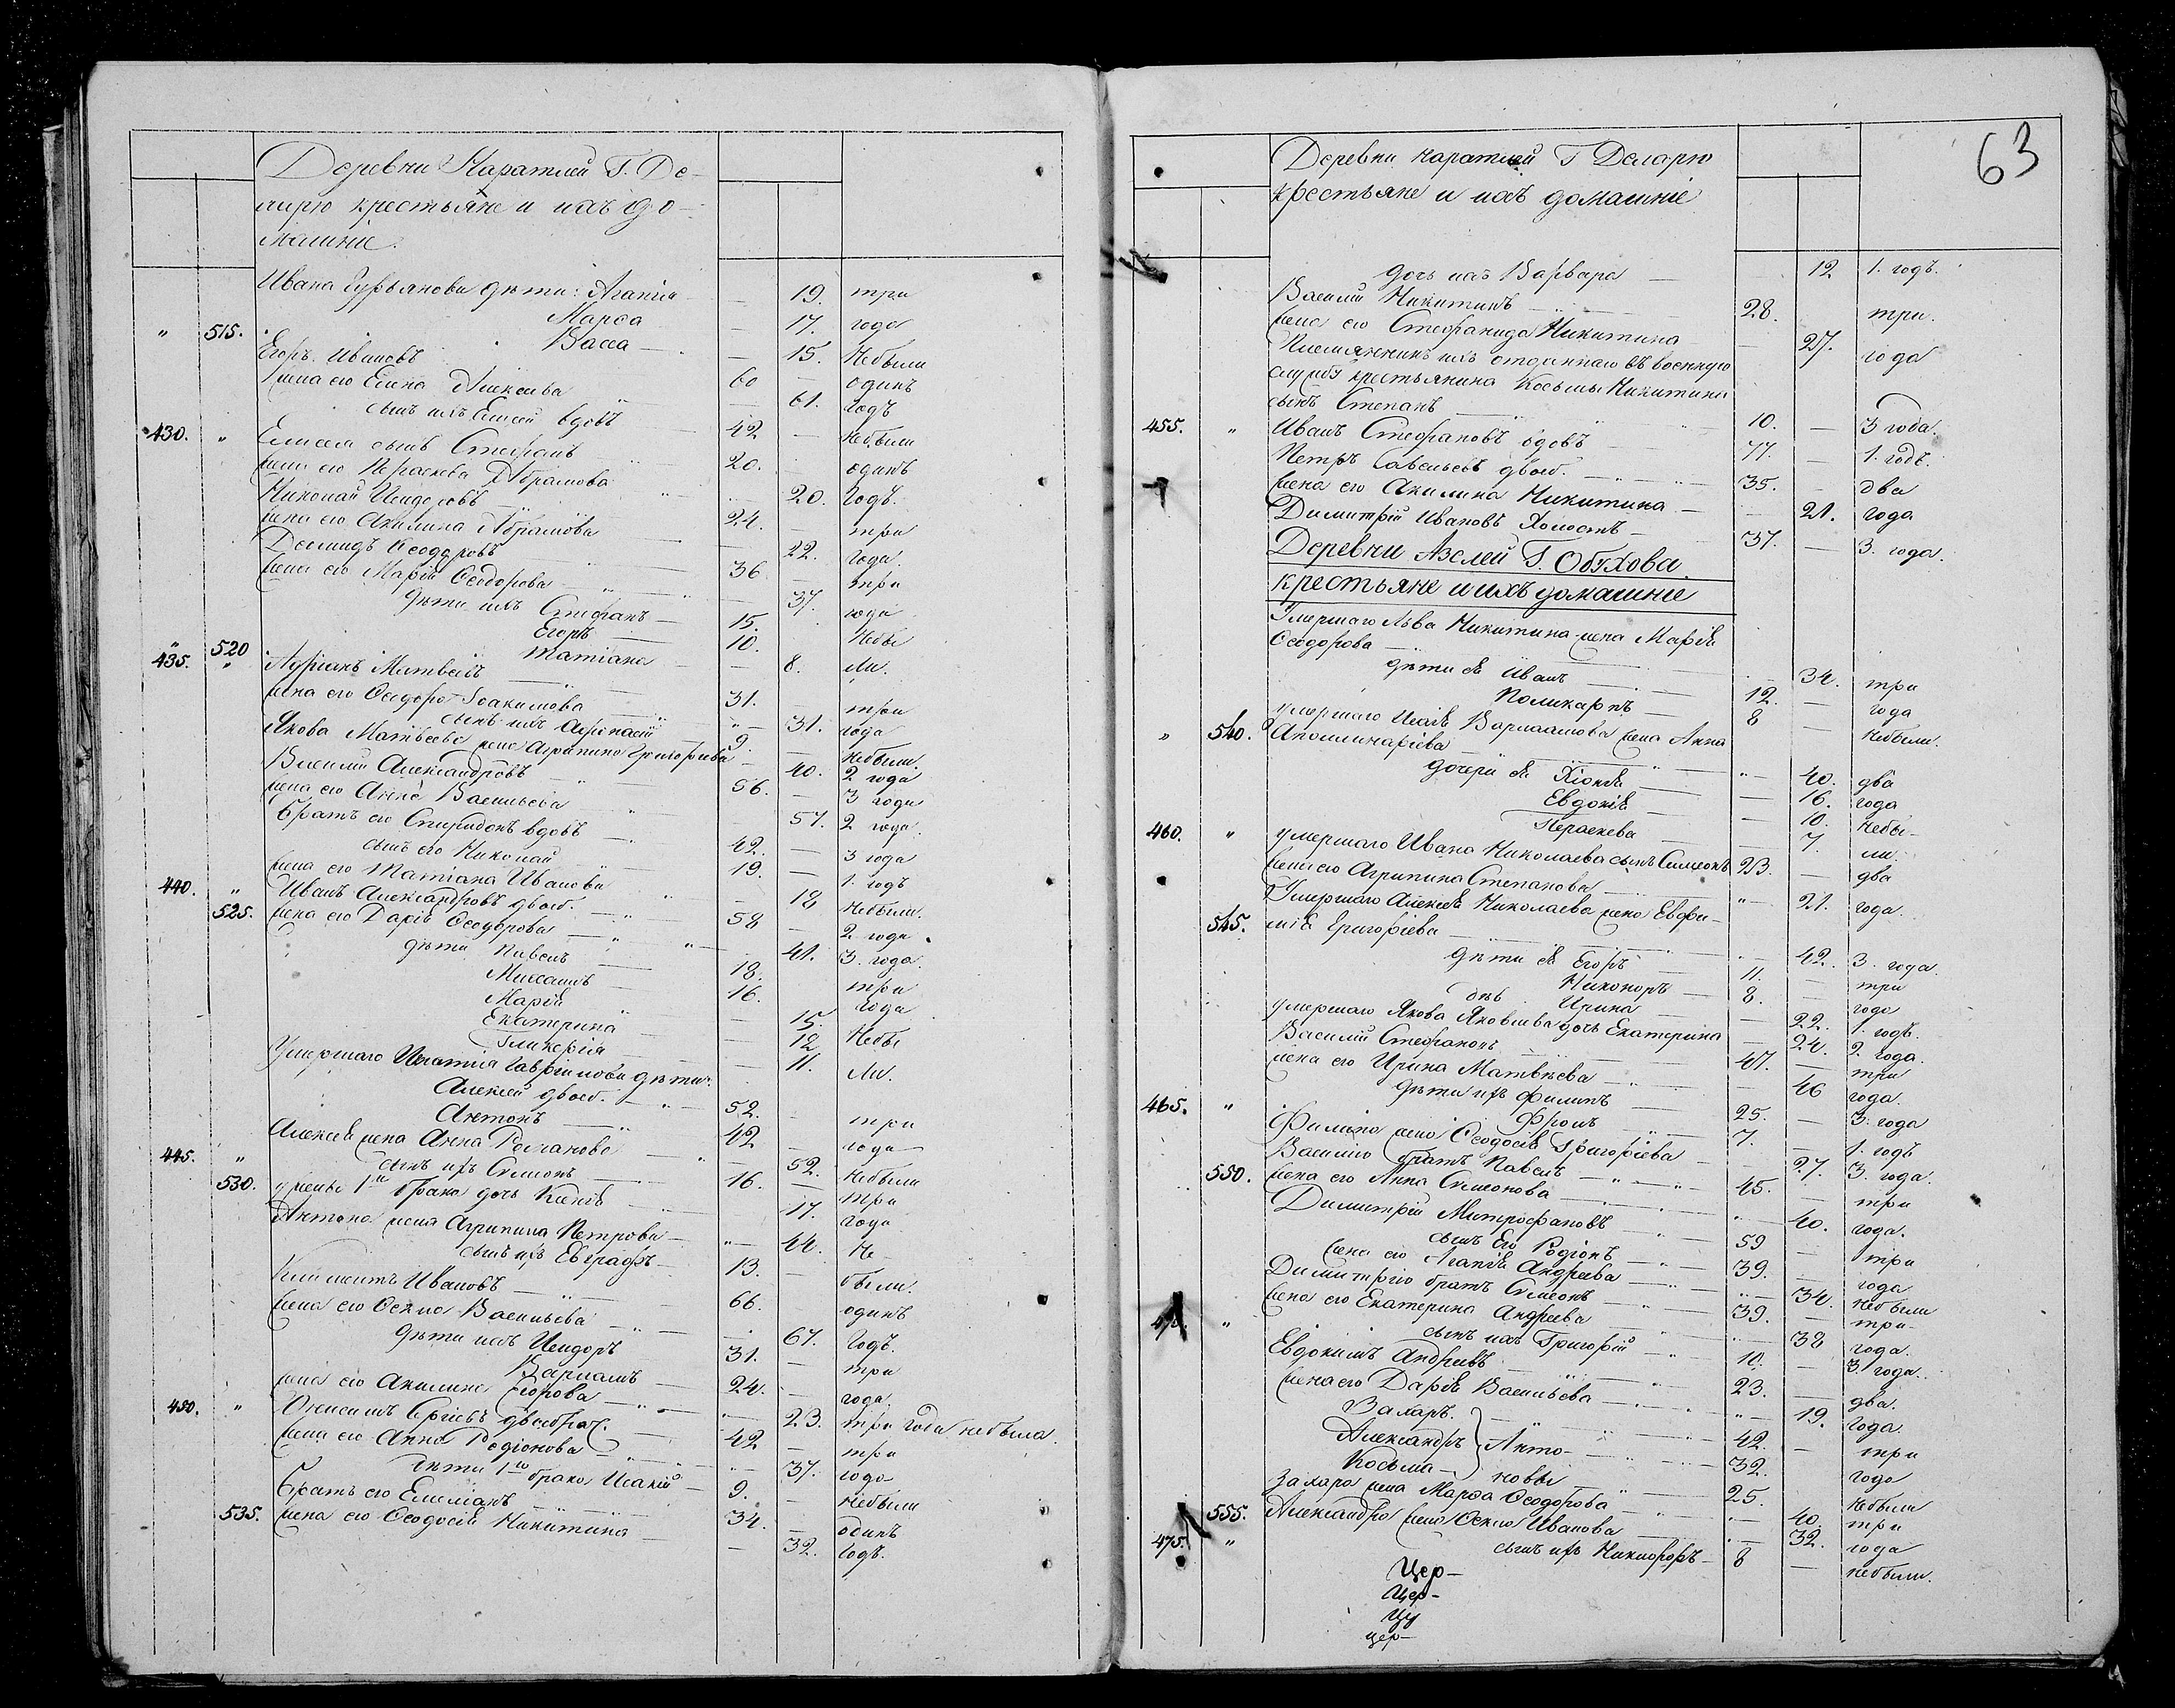 Деревни Каратлей Г. Де-
ларю крестьяне и ихъ до-
машніе.
Ивана Гурьянова дѣти: Агапія — 19. три
Марѳа — 17. года
" 515. Васса — 15. Небыли
Егоръ Ивановъ 60 — одинъ
жена его Елена Алексѣева — 61. годъ
сынъ ихъ Елисей вдовъ 42 — небыли
430. " Елисея сынъ Стефанъ 20. — одинъ
жена его Параскева Абрамова — 20. Годъ.
Николай Исидоровъ 24. — три
жена его Акилина Абрамова — 22. года.
Демидъ Ѳеодоровъ 36 — три
жена его Марія Ѳеодорова — 37. года
дѣти ихъ Стефанъ — 15. Небы
Егоръ — 10.
" 520 Татіана — 8. ли.
435. " Авріанъ Матвеевъ 31. три
жена его Ѳеодора Іоакимова — 31. года
сынъ ихъ Аѳонасій 9. — небыли.
Якова Матвеева жена Агрипина Григорьева — 40. 2 года
Василій Александровъ 56. — 3 года
жена его Анна Васильева — 57. 2 года.
братъ его Спиридонъ вдовъ 42. — 3 года
сынъ его Николай 19. — 1. годъ
жена его Татіана Иванова — 18 Небыли.
440. " Иванъ Александровъ двоеб. — 58 — 2 года.
525. жена его Дарія Ѳеодорова — 41. 3. года.
дѣти Павелъ — 18. три
Михаилъ — 16. года
Марія — 15.
Екатерина — 12 Небы
Гликерія — 11. ли.
Умершаго Игнатія Гаврилова дѣти:
Алексей двоеб. — 52. три
Антонъ — 42 — года
Алексея жена Анна Романова — 52. Небыли
445. " сынъ ихъ Симеонъ 16. — три
530. у жены 1й брака дочь 17. года
Антона жена Агрипина Петрова — 44. Не-
сынъ ихъ Евграфъ — 13. — были.
Климентъ Ивановъ — 66. одинъ
жена его Ѳекла Васильева — 67. Годъ.
дѣти ихъ Исидоръ 31. — три
Варлаамъ 24. — года.
жена его Акилина Егорова — 23. три года небыла.
450. " Онисимъ Сергіевъ двоебрач. 42 — три
жена его Анна Родіонова — 37. года
дѣти 1го брака Исакій — 9. — небыли
братъ его Емеліанъ 34. — одинъ
535. жена его Ѳеодосія Никитина — 32. Годъ.
63
Деревни Каратлей Г Деларю
крестьяне и ихъ домашніе
дочь ихъ Варвара — 12 1. годъ.
Василій Никитинъ 28. три.
жена его Стефанида Никитина — 27. года
Племянникъ ихъ отданнаго въ военную
службу крестьянина Косьмы Никитина
сынъ Степанъ 10. — 3 года.
455. " Иванъ Стефановъ вдовъ 77. — 1. годъ.
Петръ Савельевъ двоеб. 35. — два
жена его Акилина Никитина — 21. года
Димитрій Ивановъ Холостъ — 37. — 3. года.
Деревни Азелей Г. Обухова.
крестьяне и ихъ домашніе
Умершаго Льва Никитина жена Марія
Ѳеодорова — 34. три
дѣти ея Иванъ — 12. — года
Поликарпъ — 8 — небыли.
умершаго Исаія Варлаамова жена Анна
" 540. Аполлинаріева — 40. два
дочери ея Хіонія — 16. года
Евдокія — 10. небы-
Параскева — 7. ли.
460. " умершаго Ивана Николаева сынъ Симеонъ 23. — два
жена его Агрипина Степанова — 21. года.
Умершаго Алексея Николаева жена Евфи-
545. мія Григоріева — 42. 3. года.
дѣти ея Егоръ — 11. — три
Никоноръ — 8. — года
Ирина — 22. 1. годъ.
умершаго Якова Яковлева дочь Екатерина — 24. 2. года.
Василій Стефановъ 47. три
жена его Ирина Матвѣева — 46 года.
дѣти ихъ Филипъ 25. — 3. года
465. " Фролъ 7. — 1. годъ
Филипа жена Ѳеодосія Григоріева — 27. 3. года.
Василія братъ Павелъ — 45. — три
550. жена его Анна Симеонова — 40. года.
Димитрій Митрофановъ — 59 — три
сынъ Его Родіонъ — 39. — года
жена его Агапія Андреева — 34. небыли
Димитрія братъ Симеонъ — 39. — три
жена его Екатерина Андреева — 38 года.
" сынъ ихъ Григорій — 10. — 3. года.
Евдокимъ Андреевъ 23. — два.
жена его Дарія Васильева — 19. года.
Захаръ. 42. — три
Александръ } Анто- 32. года
Косьма — новы 25. небыли
Захара жена Марѳа Ѳеодорова — 40. три
555. Александра жена Ѳекла Иванова — 32. года
475. " сынъ ихъ Никифоръ — 8 — небыли.
Цер-
Цер-
Цу
цер-